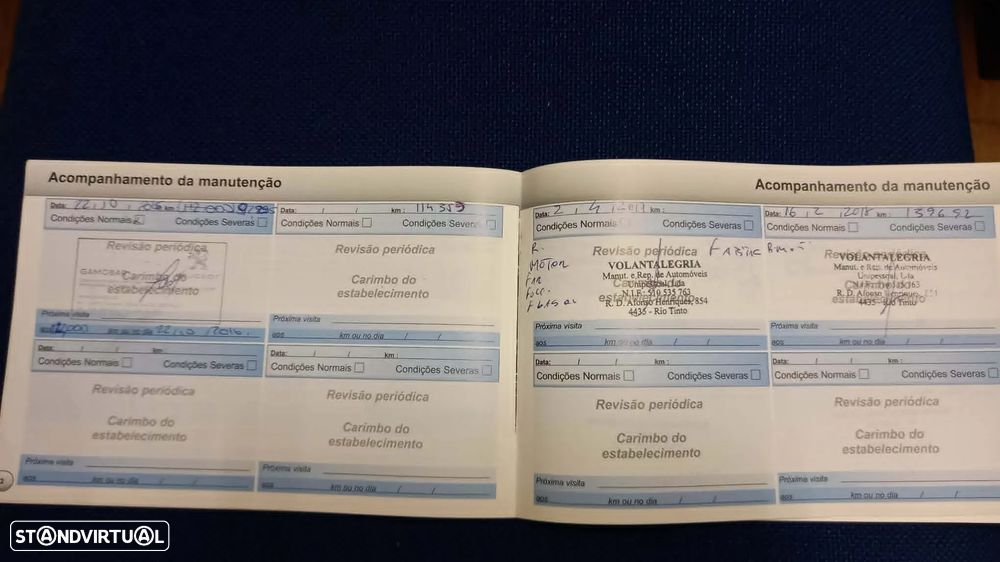 Acompanhamento da manutenção
Data: 22, 10, km
Condições Normais Condições Severas
Revisão periódica
GAMOBAR PEUGEOT
Carimbo do
estabelecimento
Próxima visita
aos km ou no dia 22, 0, 2016
Data: / / km : 114 359
Condições Normais Condições Severas
Revisão periódica
Carimbo do
estabelecimento
Próxima visita
aos km ou no dia / /
Data: / / km :
Condições Normais Condições Severas
Revisão periódica
Carimbo do
estabelecimento
Próxima visita
aos km ou no dia / /
Data: / / km :
Condições Normais Condições Severas
Revisão periódica
Carimbo do
estabelecimento
Próxima visita
aos km ou no dia / /
2
Acompanhamento da manutenção
Data: 2, 4, km :
Condições Normais Condições Severas
R.
MOTOR
Revisão periódica
VOLANTALEGRIA
Manut. e Rep. de Automóveis
Unipessoal, Lda
N.I.F.: 510 535 763
R. D. Afonso Henriques, 854
4435 - Rio Tinto
Próxima visita
aos km ou no dia / /
Data: 16, 2, 2018 km : 139652
Condições Normais Condições Severas
Revisão periódica
VOLANTALEGRIA
Manut. e Rep. de Automóveis
Unipessoal, Lda
R. D. Afonso Henriques,
4435 - Rio Tinto
Próxima visita
aos km ou no dia / /
Data: / / km :
Condições Normais Condições Severas
Revisão periódica
Carimbo do
estabelecimento
Próxima visita
aos km ou no dia / /
Data: / / km :
Condições Normais Condições Severas
Revisão periódica
Carimbo do
estabelecimento
Próxima visita
aos km ou no dia / /
STANDVIRTUAL